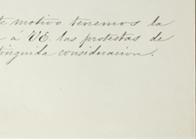 te motivo tenemos la
á VE. las protestas de
tinguida consideracion.